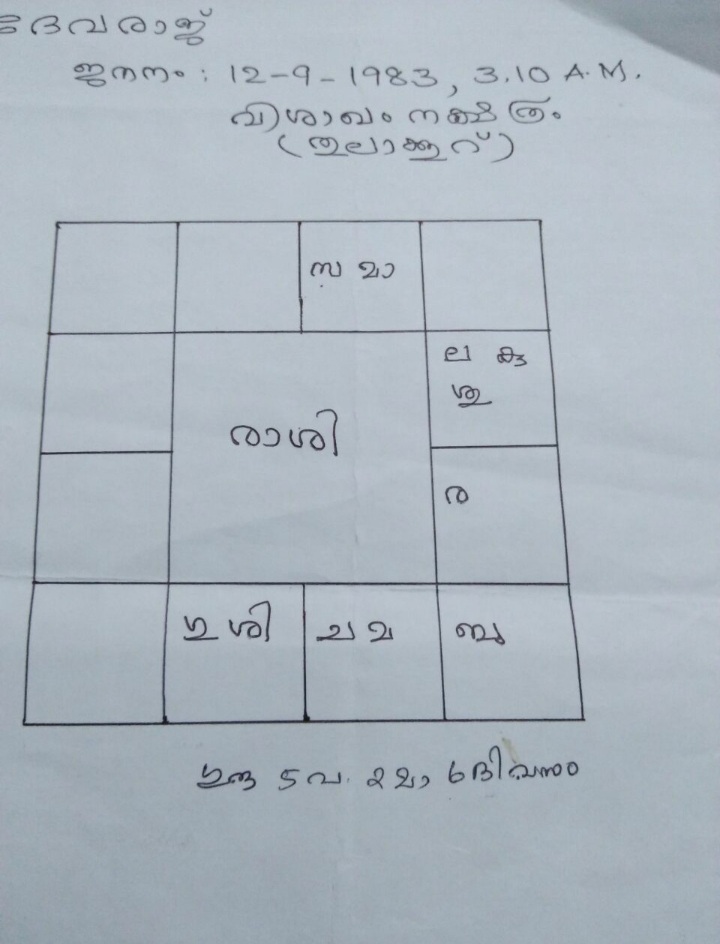 ദേവരാജ്
ജനനം : 12-9-1983, 3.10 A.M.
വിശാഖം നക്ഷത്രം
(തുലാക്കൂറ്)
സ മാ
ല കു
ശു
രാശി
ര
ഗു ശി
ച മ
ബു
ഗുരു 5 വ. 2 മാ, 6 ദിവസം